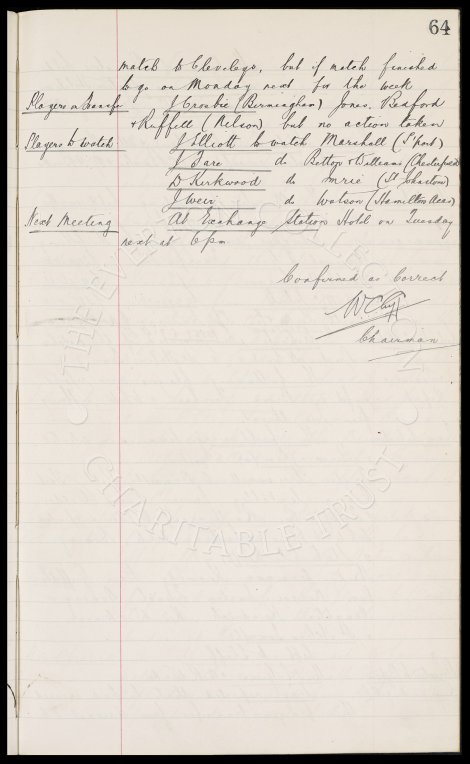 64
match to Cleveleys, but if match finished
to go on Monday next for the week
Players on Transfer J Crosbie (Birmingham) Jones.
& Ruffell (Nelson) but no action taken
Players to watch J Elliott to watch Marshall (S'port)
do Bettop & Williams (Chesterfield)
D Kirkwood do Imrie (St Johnston)
J Weir do Watson (Hamilton Acas)
Next Meeting At Exchange Station Hotel on Tuesday
next at 6 pm
Confirmed as Correct
W.C. Cuff
Chairman
THE EVERTON COLLECTION
CHARITABLE TRUST